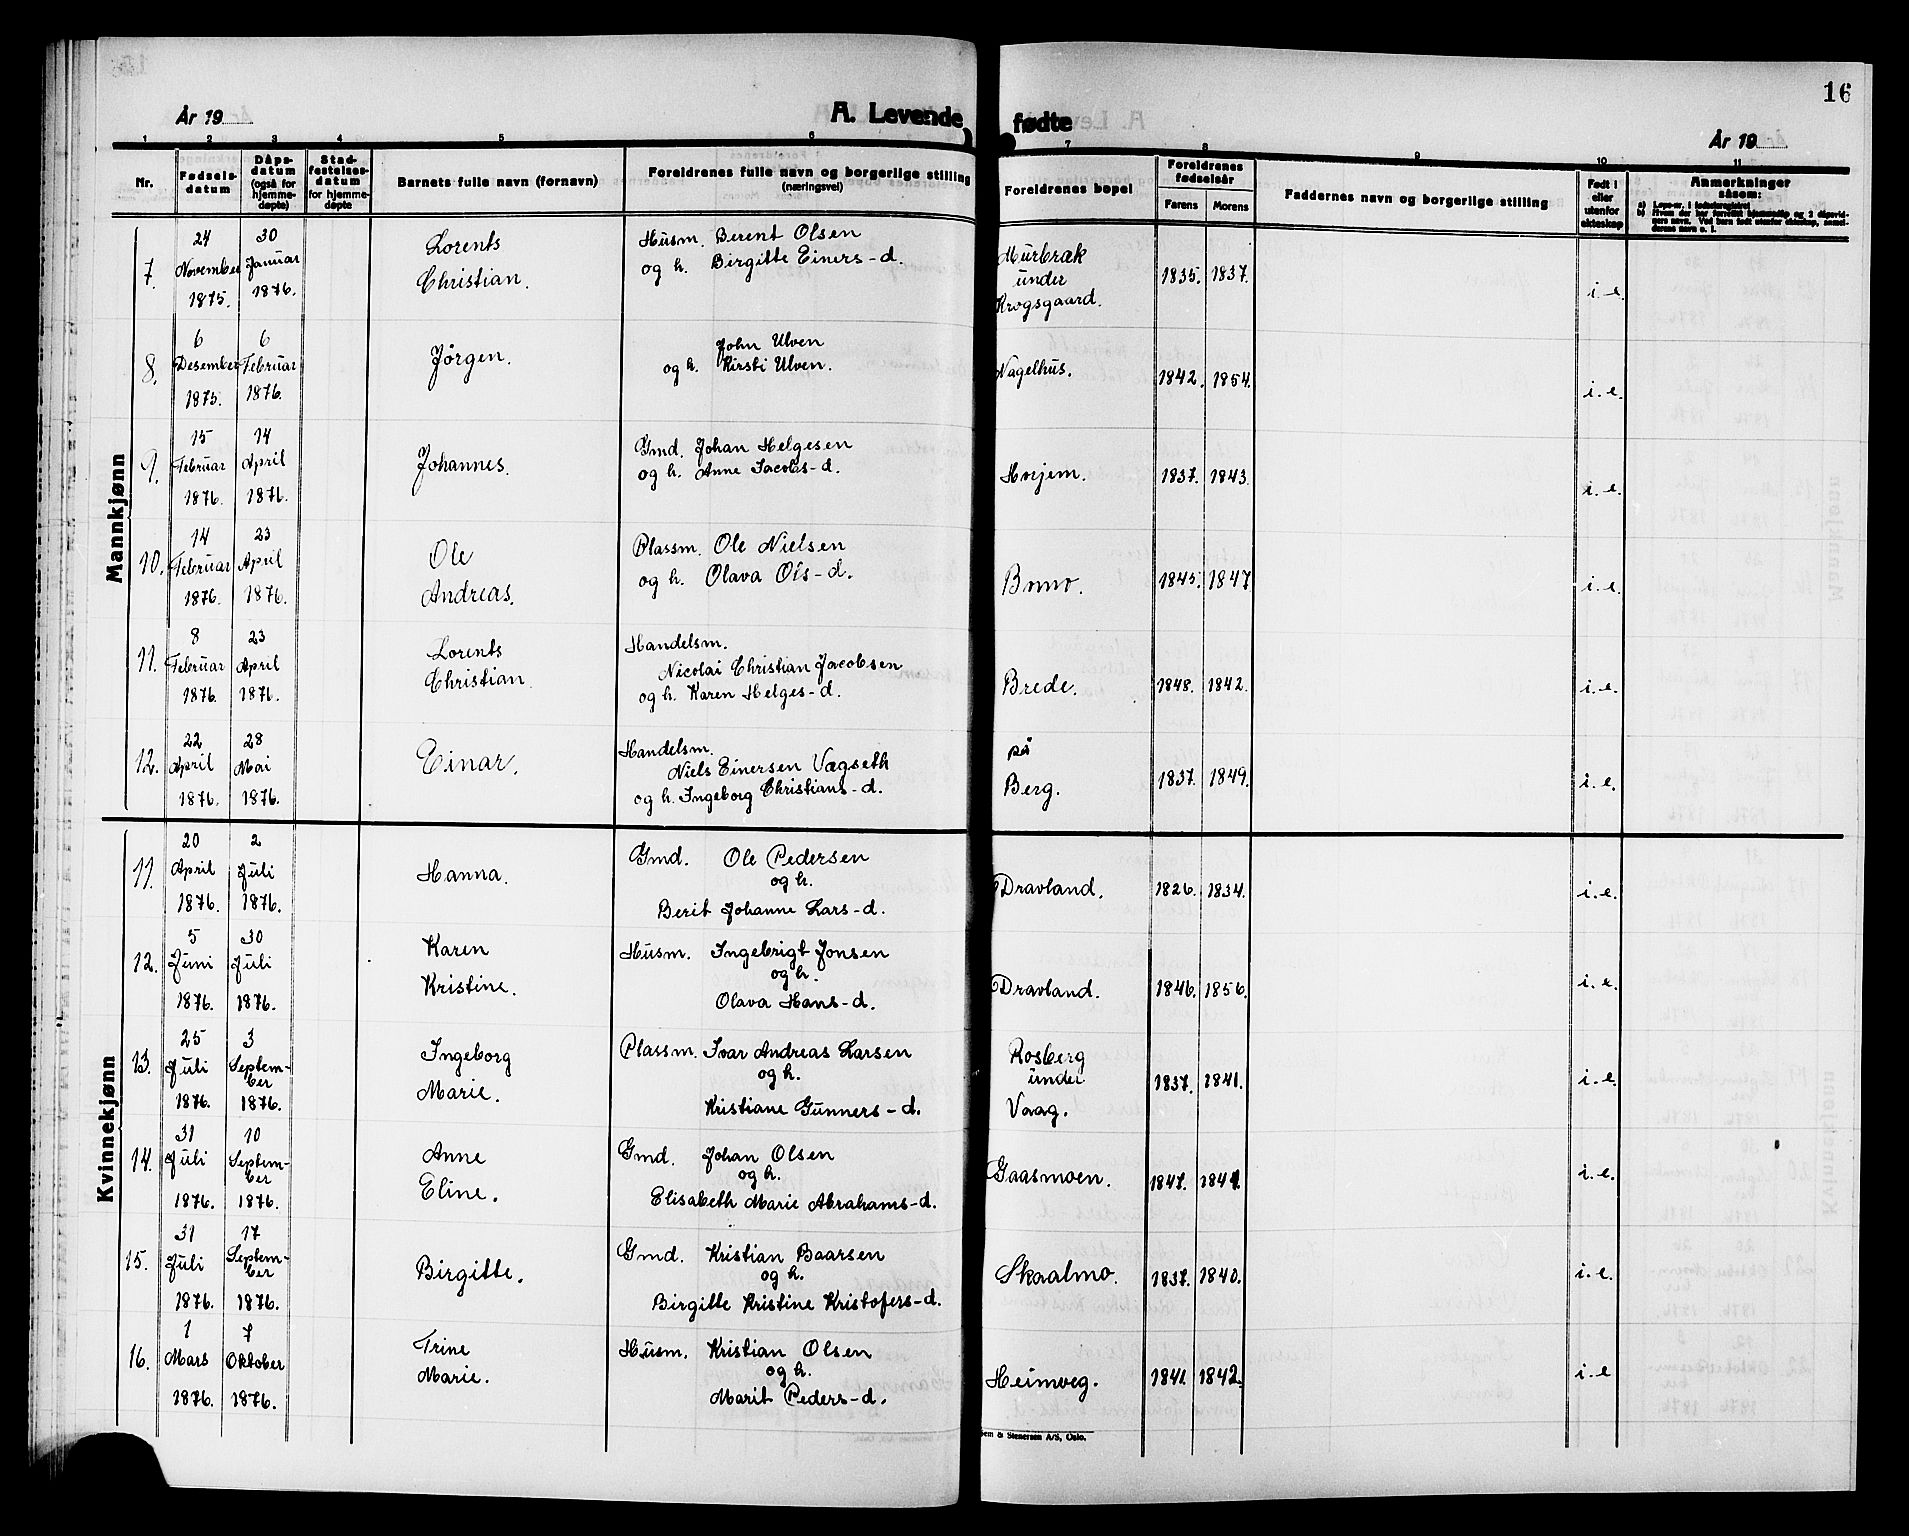 16
År 19
A. Levende
fødte
År 19
1 2 3 4 5 6 7 8 9 10 11
Nr.
Fødselsdatum
Dåpsdatum (også for hjemmedøpte)
Stadfestelsesdatum for hjemmedøpte
Barnets fulle navn (fornavn)
Foreldrenes fulle navn og borgerlige stilling (næringsvei)
Foreldrenes bopel
Foreldrenes fødselsår
Farens Morens
Faddernes navn og borgerlige stilling
Født i eller utenfor ekteskap
Anmerkninger såsom:
Mannkjønn
7. 24 November 1875. 30 Januar 1876. Lorents Christian. Husm. Berent Olsen og h. Birgitte Einers-d. Murbræk under Krogsgaard. 1835. 1837. i.e.
8. 6 Desember 1875. 6 Februar 1876. Jørgen. John Ulven og h. Kirsti Ulven. Nagelhus. 1842. 1854. i.e.
9. 15 Februar 1876. 14 April 1876. Johannes. Gmd. Johan Helgesen og h. Anne Jacobs-d. Hvjem. 1837. 1843. i.e.
10. 14 Februar 1876. 23 April 1876. Ole Andreas. Plassm. Ole Nielsen og h. Olava Ols-d. Bomo. 1845. 1847 i.e.
11. 8 Februar 1876. 23 April 1876. Lorents Christian. Handelsm. Nicolai Christian Jacobsen og h. Karen Helges-d. Brede. 1848. 1842. i.e.
12. 22 April 1876. 28 Mai 1876. Einar. Handelsm. Niels Einersen Vægseth og h. Ingeborg Christians-d. på Berg. 1837. 1849. i.e.
Kvinnekjønn
11. 20 April 1876. 2 Juli 1876. Hanna. Gmd. Ole Pedersen og h. Berit Johanne Lars-d. Dravland. 1826. 1834. i.e.
12. 5 Juni 1876. 30 Juli 1876. Karen Kristine. Husm. Ingebrigt Jonsen og h. Olava Hans-d. Dravland. 1846. 1856. i.e.
13. 25 Juli 1876. 3 September 1876. Ingeborg Marie. Plassm. Ivar Andreas Larsen og h. Kristiane Gunners-d. Rosberg under Vaag. 1837. 1841. i.e.
14. 31 Juli 1876. 10 September 1876. Anne Eline. Gmd. Johan Olsen og h. Elisabeth Marie Abrahams-d. Gaasmoen. 1847. i.e.
15. 31 Juli 1876. 17 September 1876. Birgitte. Gmd. Kristian Baarsen og h. Birgitte Kristine Kristofers-d. Skaalmo. 1837. 1840. i.e.
16. 1 Mars 1876. 7 Oktober 1876. Trine Marie. Husm. Kristian Olsen og h. Marit Peders-d. Heimveg. 1841. 1842. i.e
Sem & Stenersen A/S, Oslo.